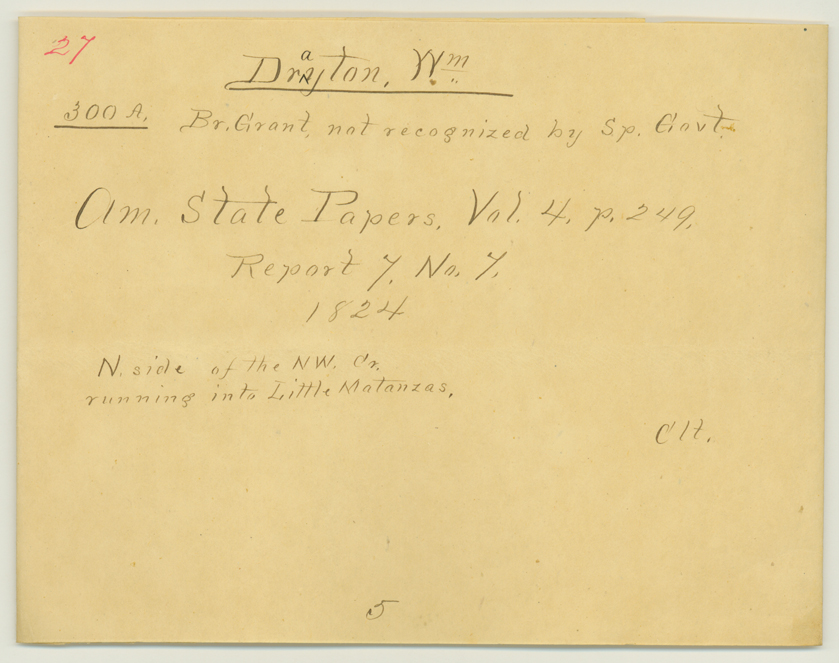 27
Drayton, Wm.
300 A. Br. Grant, not recognized by Sp. Govt.
Am. State Papers, Vol. 4, p. 249.
Report 7, No. 7.
1824
N. side of the NW. Cr.
running into Little Matanzas.
Clt.
5